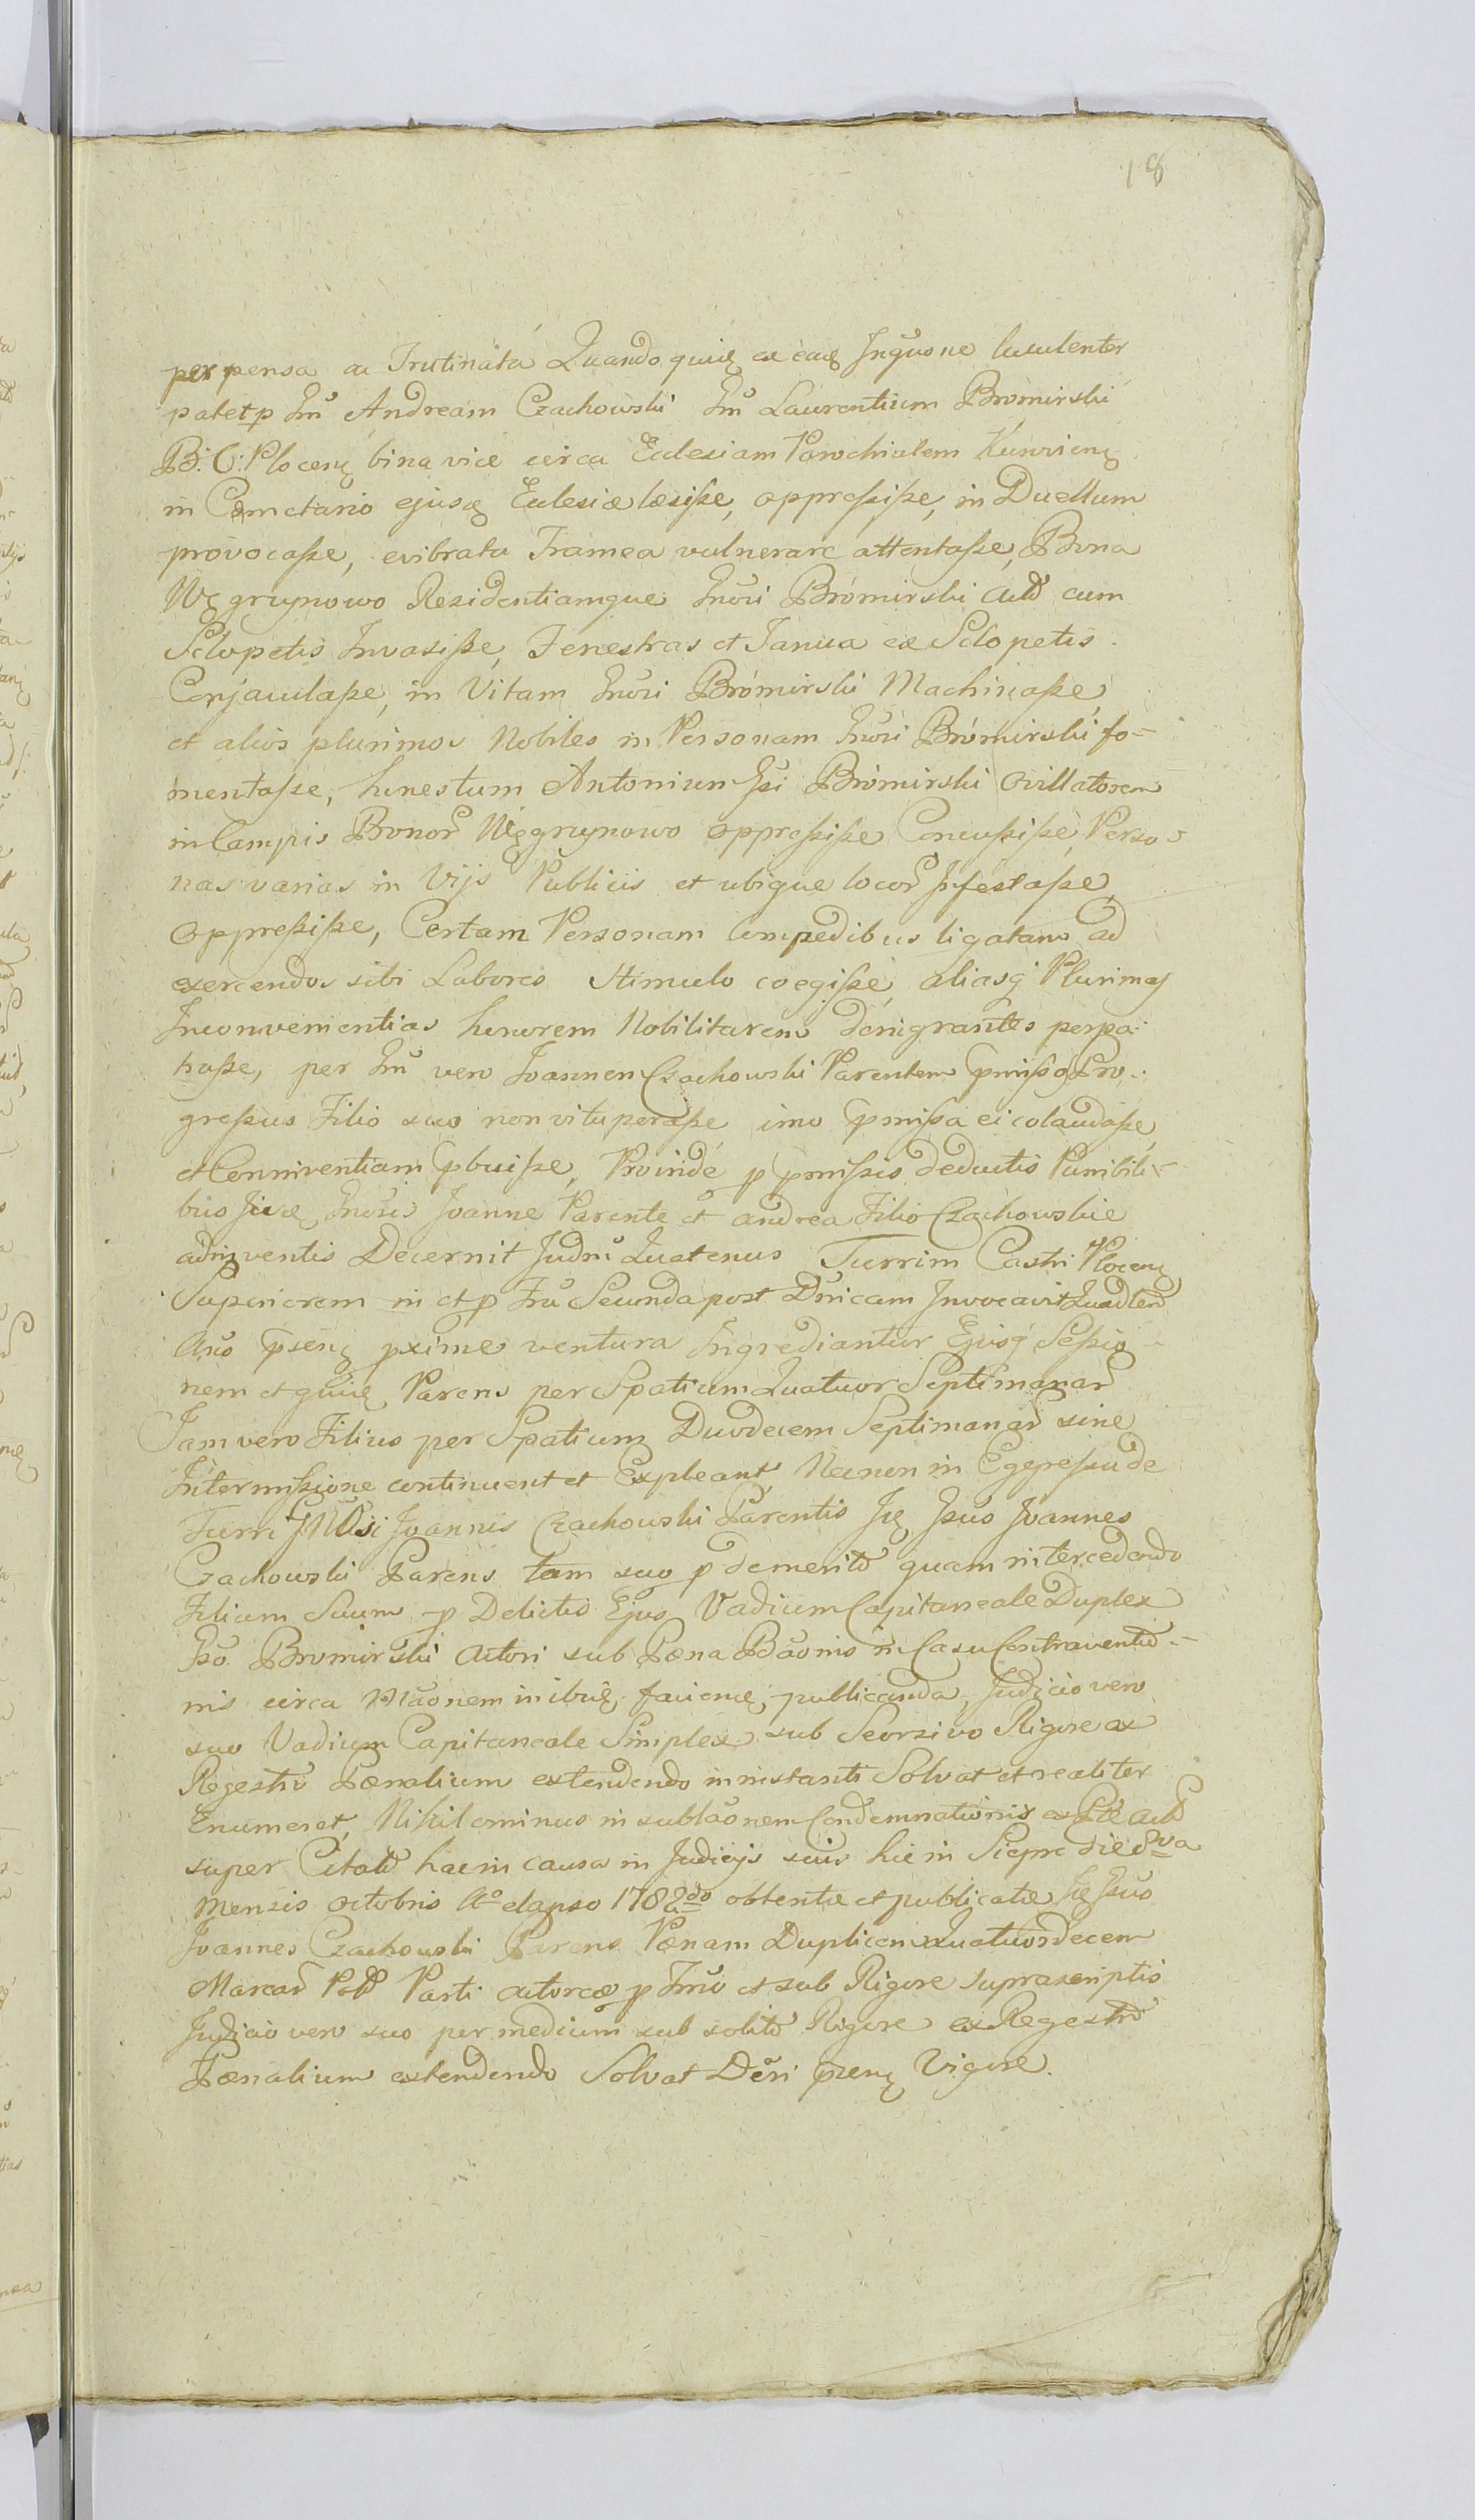 18
perpensa ac Trutinata Quando quid ex ead Inqūone luculenter
patet p Gn̄ Andream Czachowski Gn̄ Laurentium Bromirski
B: C: Plocen bina vice circa Ecclesiam Parochialem
in Cæmetario ejusd Ecclesiæ læsiſse, oppreſsiſse, in Duellum
provocaſse, evibrata Framea vulnerare attentaſse, Bona
Węgrzynowo Residentiamque Bromirski cum
Sclopetis Invasiſse, Fenestras et Janua ex Sclopetis
Conjaculaſse, in Vitam Bromirski Machinaſse
et alios plurimos Nobiles in Personam Bromirski fo-
mentaſse, honestum Antonium Gsi Bromirski Ovillatorem
in Campis Bonor Węgrzynowo oppreſsiſse Concuſsiſse, Perso-
nas varias in Vijs Publicis et ubique locor Infestaſse,
Oppreſsiſse, Certam Personam Compedibus ligatam ad
exercendos sibi Labores Stimulo coegiſse aliasq Plurimas
Inconvenientias honorem Nobilitarem denigrantes perpa-
traſse, per Gn̄ vero Joannem Czachowski Parentem p̄miſsos Pro-
greſsus Filio suo non vituperaſse imo p̄miſsa ei colaudaſse,
et Conniventiam p̄buiſse, Proinde p p̄miſsis deductis Punibili-
bus Joanne Parente et Andrea Filio Czachowskie
adinventis Decernit Judm̄ Quatenus Turrim Castri Plocen
Superiorem in et p Fr̄a Secunda post Dn̄icam Invocavit
An̄o p̄sen pxime ventura Ingrediantur Ejusq Seſsio-
nem et quid Parens per Spatium Quatuor Septimanar
Jam vero Filius per Spatium Duodecem Septimanar sine
Intermiſsione continuent et Expleant, Necnon in Egreſsu de
Turri Joannis Czachowski Parentis Id Gsus Joannes
Czachowski Parens tam suo p demerito quam intercedendo
Filium Suum p Delictis Ejus Vadium Capitaneale Duplex
Gso Bromirski Actori sub Pæna Bāonis in Casu Contraventio-
nis circa publicanda, Judicio vero
suo Vadium Capitaneale Simplex sub Seorsivo Rigore ex
Regestro Pænalium extendendo in instanti Solvat et realiter
Enumeret, Nihilominus in sublāonem Condemnationis ex
super Citato hac in causa in Judicijs suis hic in Sieprc die 8va
Mensis octobris Ao elapso 1782do obtentæ et publicatæ Id Gsus
Joannes Czachowski Parens Pænam Duplicem Quatuordecem
Marcar Parti actoreæ p et sub Rigore suprascriptis
Judicio vero suo per medium sub solito Rigore ex Regestro
Pænalium extendendo Solvat Dēri p̄sen Vigore.